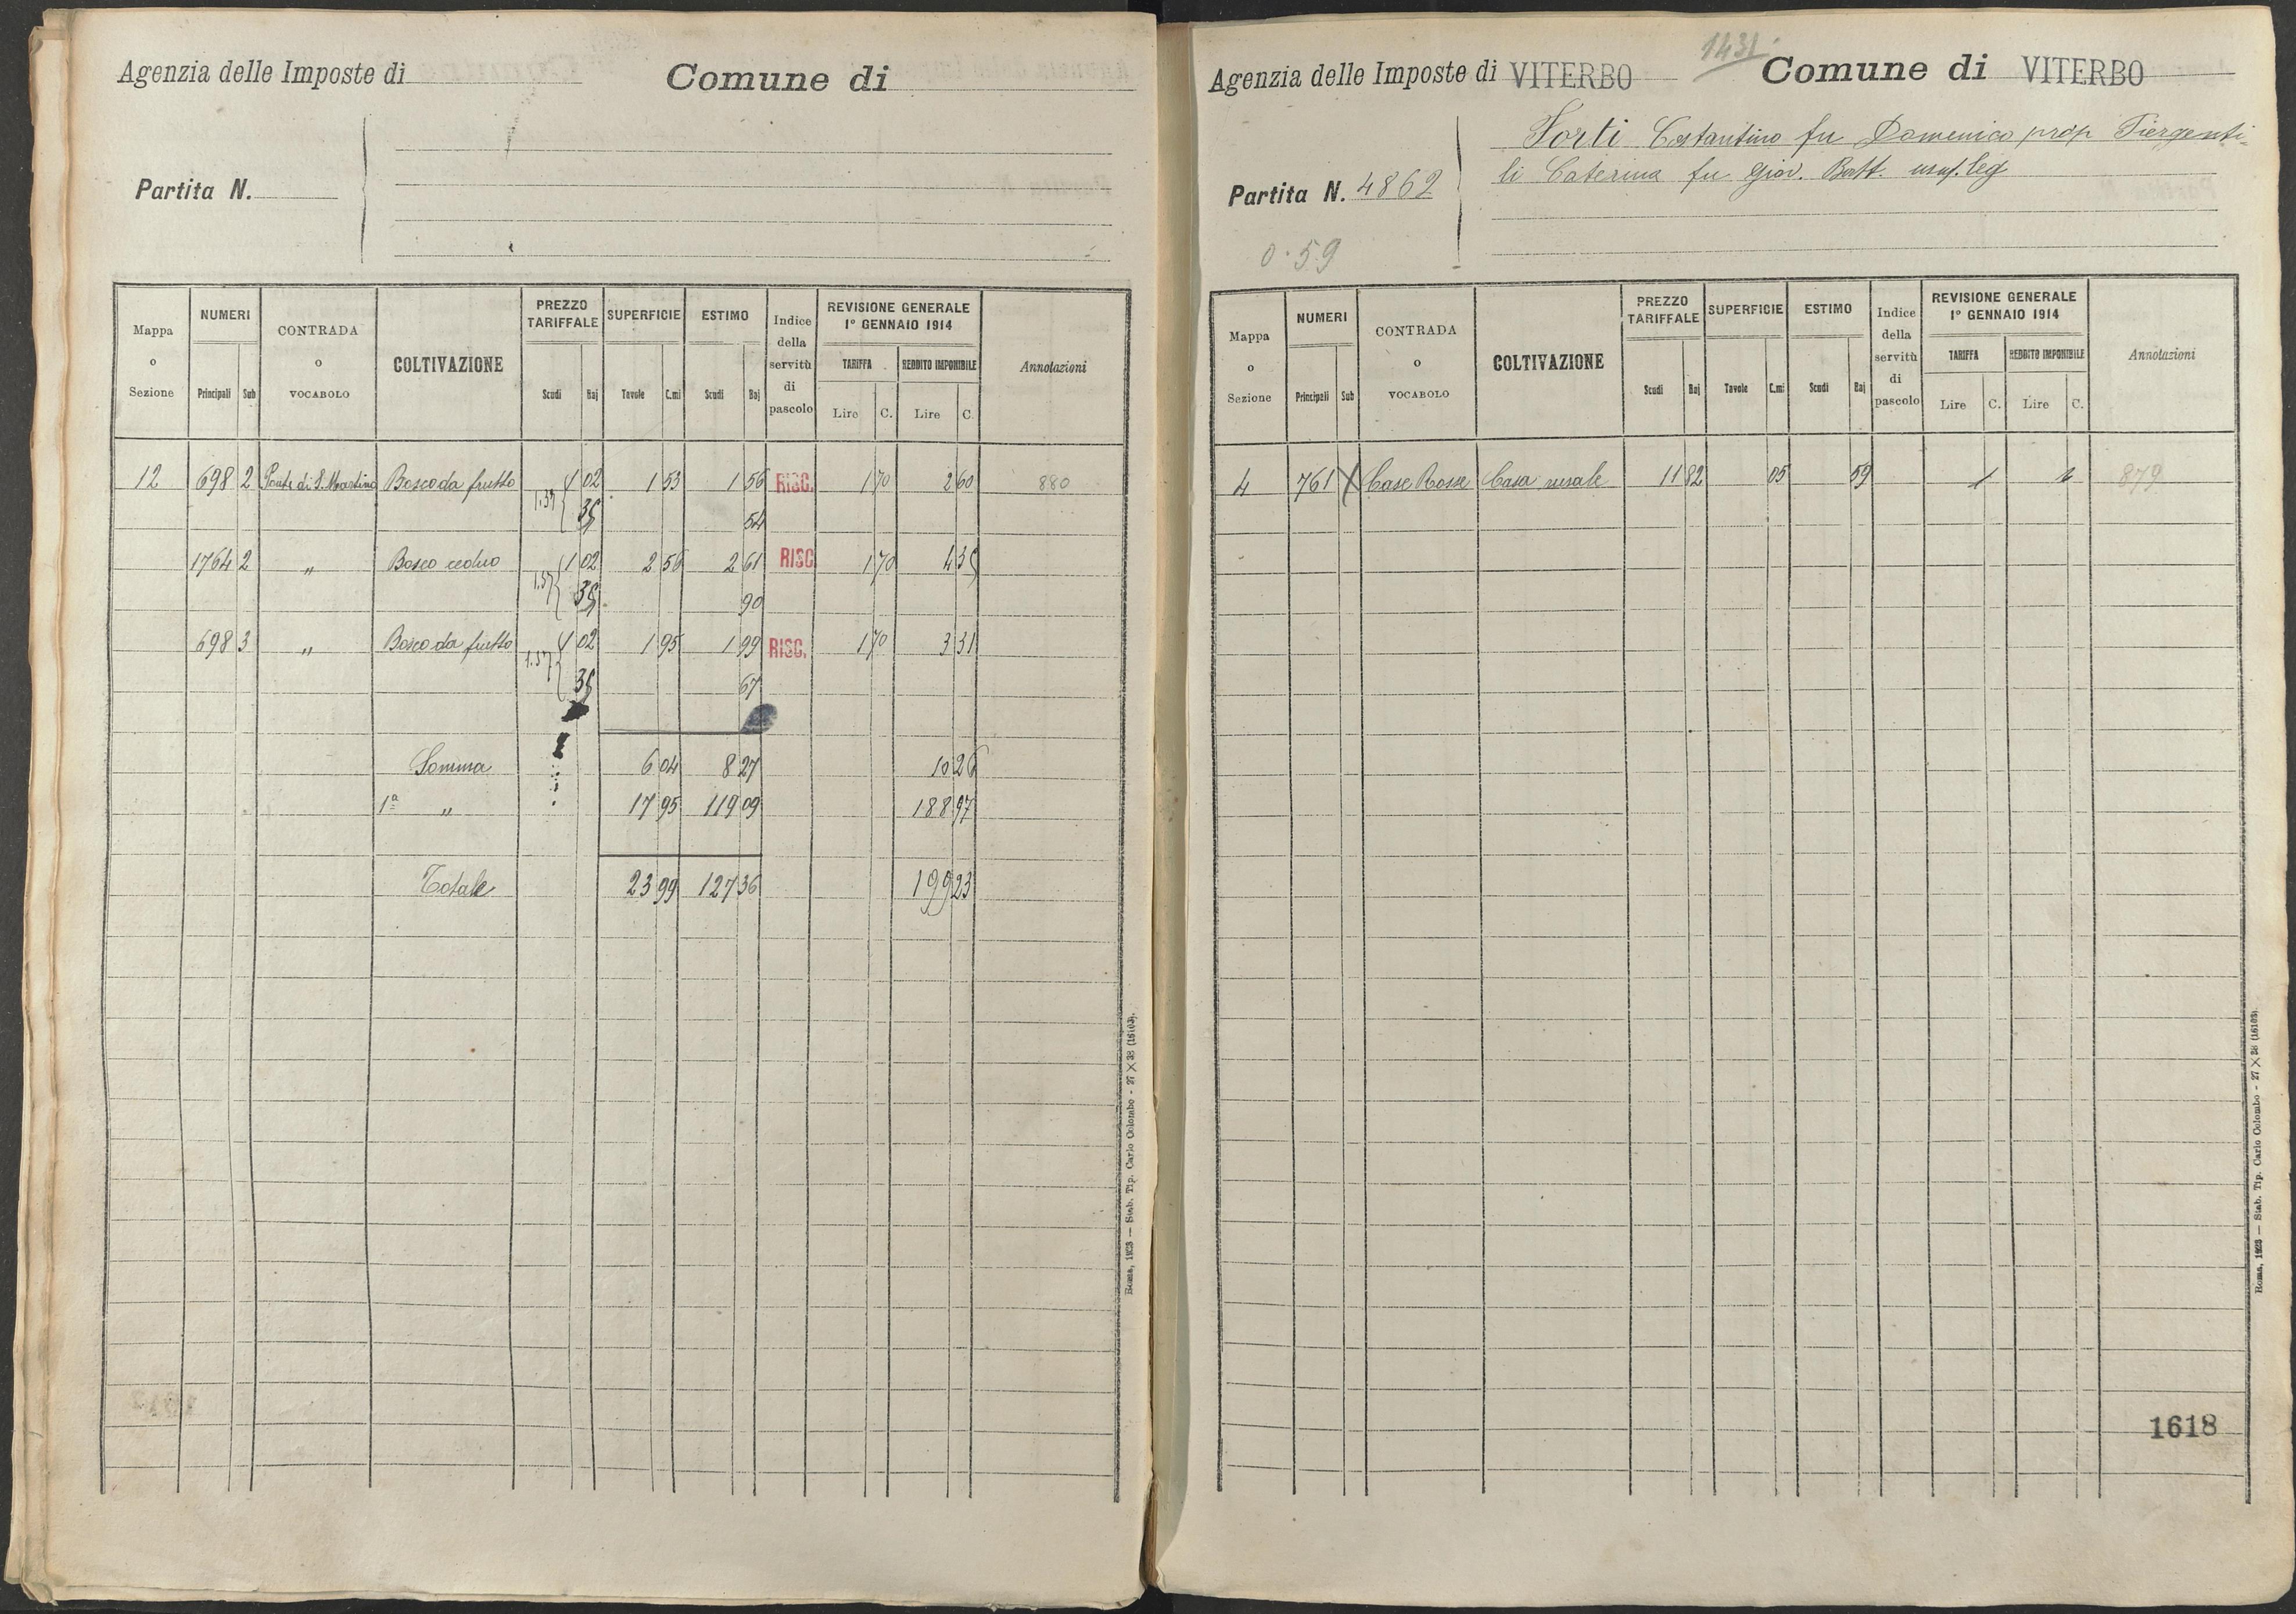 Agenzia delle Imposte di
Comune di
Partita N.
Mappa o Sezione
NUMERI
Principali Sub
CONTRADA o VOCABOLO
COLTIVAZIONE
PREZZO TARIFFALE
Scudi Baj
SUPERFICIE
Tavole C.mi
ESTIMO
Scudi Baj
Indice della servitù di pascolo
REVISIONE GENERALE 1° GENNAIO 1914
TARIFFA
Lire C.
REDDITO IMPONIBILE
Lire C.
Annotazioni
12 698 2 Ponte di S. Martino Bosco da frutto 1 02 1 53 1 56 RISC. 1 70 2 60 880
1.37 { 35 54
1764 2 " Bosco ceduo 1 02 2 56 2 61 RISC 1 70 4 35
1.37 { 35 90
698 3 " Bosco da frutto 1 02 1 95 1 99 RISC. 1 70 3 31
1.37 { 35 67
Somma 6 04 8 27 10 26
1ª " 17 95 119 09 188 97
Totale 23 99 127 36 199 23
Roma, 1923 — Stab. Tip. Carlo Colombo - 27 X 38 (16103).
1431
Agenzia delle Imposte di VITERBO
Comune di VITERBO
Forti Costantino fu Domenico prop Piergenti-
li Caterina fu Giov. Batt. usuf. leg
Partita N. 4862
0.59
Mappa o Sezione
NUMERI
Principali Sub
CONTRADA o VOCABOLO
COLTIVAZIONE
PREZZO TARIFFALE
Scudi Baj
SUPERFICIE
Tavole C.mi
ESTIMO
Scudi Baj
Indice della servitù di pascolo
REVISIONE GENERALE 1° GENNAIO 1914
TARIFFA
Lire C.
REDDITO IMPONIBILE
Lire C.
Annotazioni
4 761 X Case Rosse Casa rurale 11 82 05 59 879
1618
Roma, 1923 — Stab. Tip. Carlo Colombo - 27 X 38 (16103).